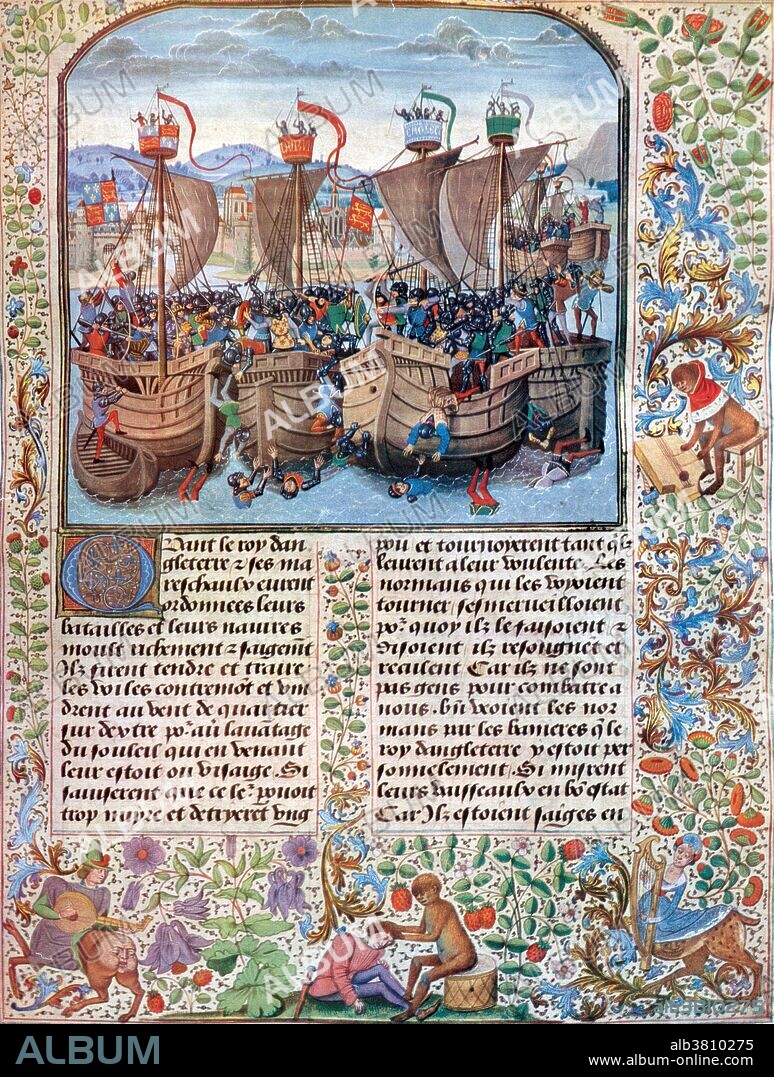 Quant le roy dan
gleterre & ses ma
reschaulx eurent
ordonnees leurs
batailles et leurs navires
moult richement & saigemt
Ilz firent tendre et traire
les voiles contremot et vin
drent au vent de quartier
sur dextre por avoir lavatage
du souleil qui en venant
leur estoit ou visaige. Si
saviserent que ce leur povoit
trop nuyre et detryeret ung
pou et tournoyerent tant qlz
leurent a leur voulente. Les
normans qui les veoient
tourner sesmerveilloient
por quoy ilz le faisoient &
disoient ilz resongnet et
reculent Car ilz ne sont
pas gens pour combatre a
nous. Bn veoient les nor
mans par les banieres q le
roy dangleterre y estoit per
sonnelement. Si misrent
leurs vaisseaulx en bo estat
Car Ilz estoient saiges en
ALBUM
ab3810275
www.album-online.com